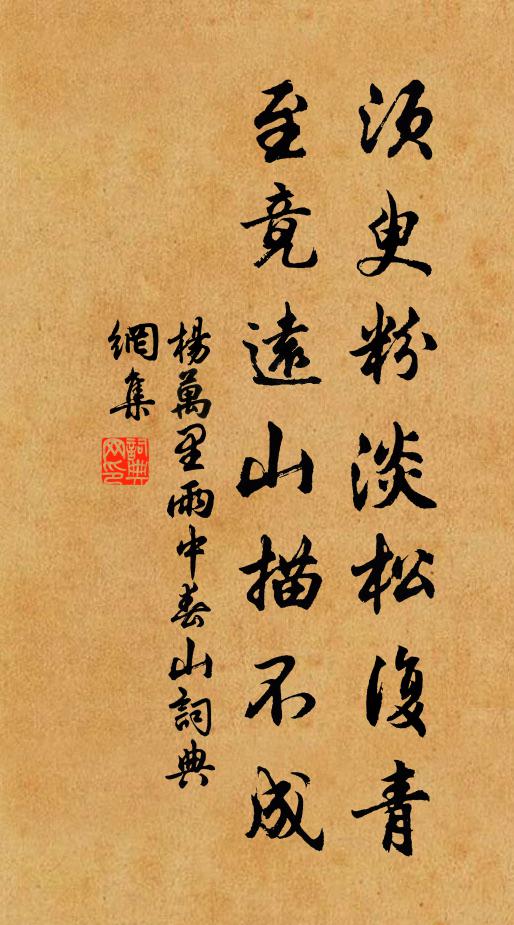 須臾粉淡松復青
至竟遠山描不成
楊萬里雨中春山詞典
網集
詞典網印